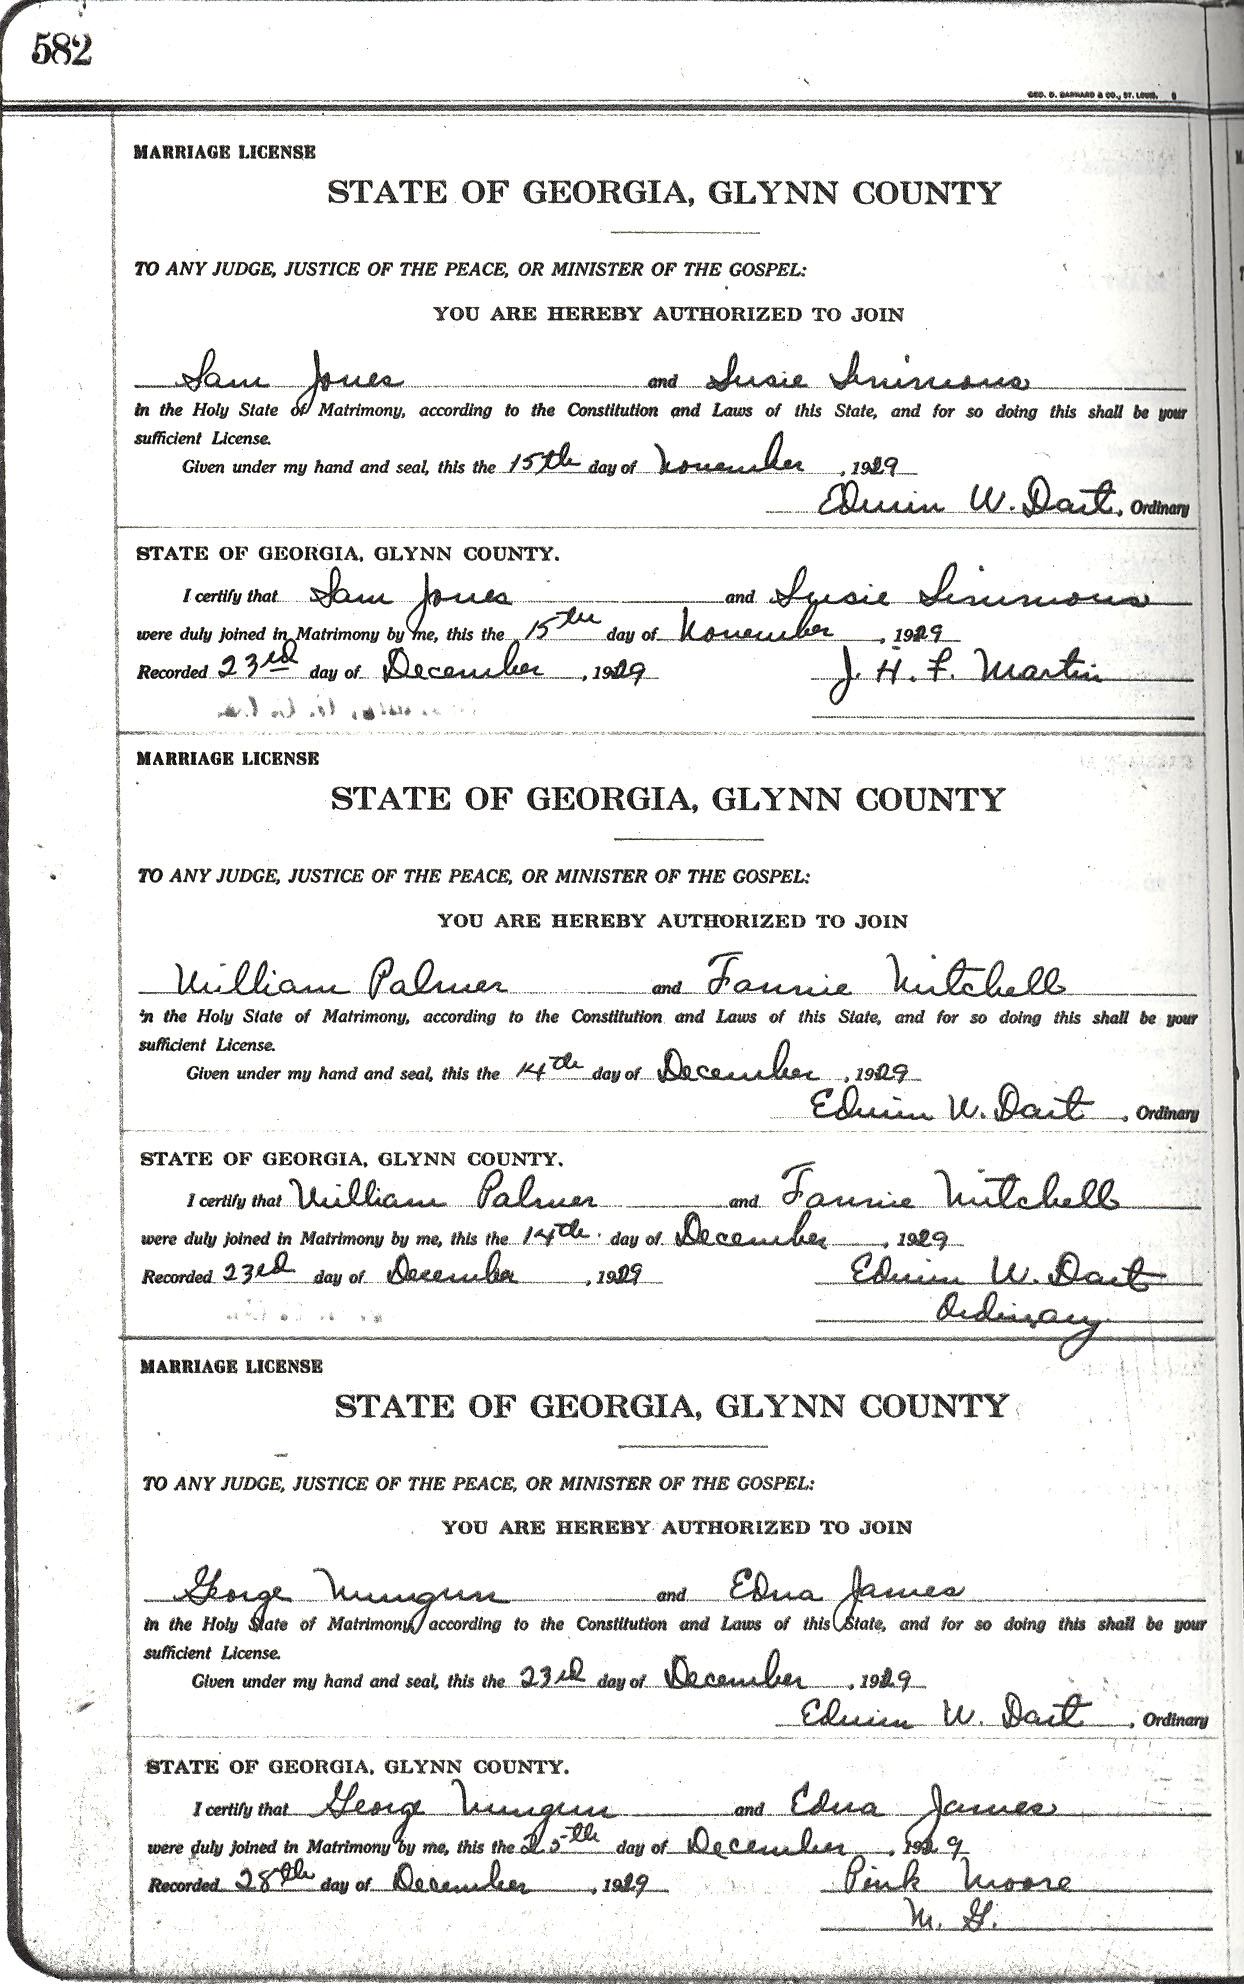 582
GEO. D. BARNARD & CO., ST. LOUIS.
MARRIAGE LICENSE
STATE OF GEORGIA, GLYNN COUNTY
TO ANY JUDGE, JUSTICE OF THE PEACE, OR MINISTER OF THE GOSPEL:
YOU ARE HEREBY AUTHORIZED TO JOIN
Sam Jones and Susie Simmons
in the Holy State of Matrimony, according to the Constitution and Laws of this State, and for so doing this shall be your
sufficient License.
Given under my hand and seal, this the 15th day of November, 1929
Edwin W. Dart, Ordinary
STATE OF GEORGIA, GLYNN COUNTY.
I certify that Sam Jones and Susie Simmons
were duly joined in Matrimony by me, this the 15th day of November, 1929
Recorded 23rd day of December, 1929 J. H. F. Martin
MARRIAGE LICENSE
STATE OF GEORGIA, GLYNN COUNTY
TO ANY JUDGE, JUSTICE OF THE PEACE, OR MINISTER OF THE GOSPEL:
YOU ARE HEREBY AUTHORIZED TO JOIN
William Palmer and Fannie Mitchell
in the Holy State of Matrimony, according to the Constitution and Laws of this State, and for so doing this shall be your
sufficient License.
Given under my hand and seal, this the 14th day of December, 1929
Edwin W. Dart, Ordinary
STATE OF GEORGIA, GLYNN COUNTY.
I certify that William Palmer and Fannie Mitchell
were duly joined in Matrimony by me, this the 14th day of December, 1929
Recorded 23rd day of December, 1929 Edwin W. Dart
Ordinary
MARRIAGE LICENSE
STATE OF GEORGIA, GLYNN COUNTY
TO ANY JUDGE, JUSTICE OF THE PEACE, OR MINISTER OF THE GOSPEL:
YOU ARE HEREBY AUTHORIZED TO JOIN
George Mungin and Edna James
in the Holy State of Matrimony, according to the Constitution and Laws of this State, and for so doing this shall be your
sufficient License.
Given under my hand and seal, this the 23rd day of December, 1929
Edwin W. Dart, Ordinary
STATE OF GEORGIA, GLYNN COUNTY.
I certify that George Mungin and Edna James
were duly joined in Matrimony by me, this the 25th day of December, 1929
Recorded 28th day of December, 1929 Pink Moore
M. G.